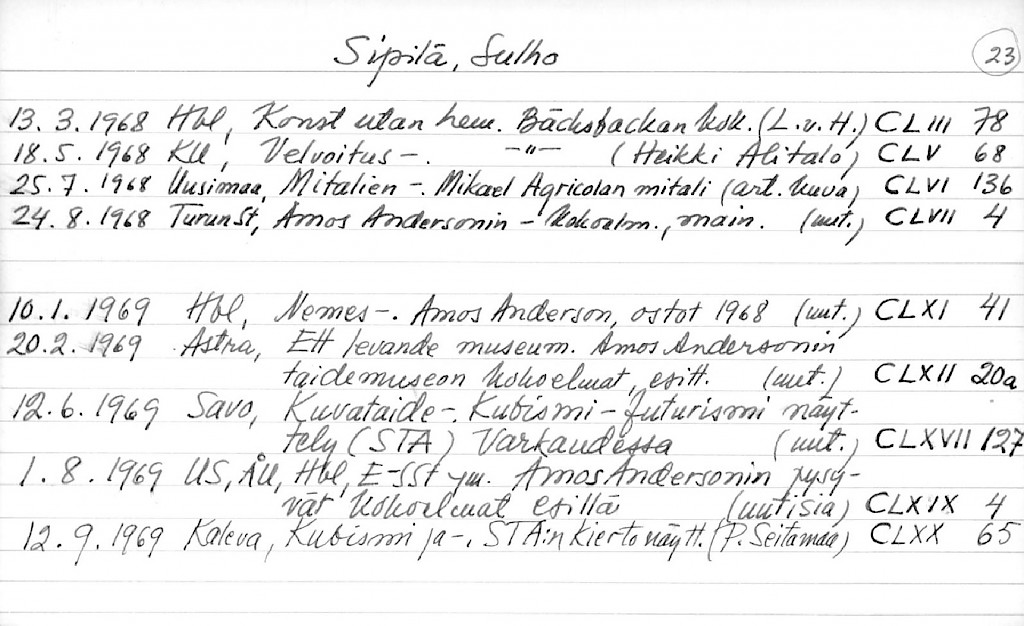 Sipilä, Sulho 23
13. 3. 1968 Hbl, Konst utan hem. Bäcksbackan kok. (L.v.H.) CLIII 78
18. 5. 1968 KU, Velvoitus -. -"- (Heikki Alitalo) CLV 68
25. 7. 1968 Uusimaa, Mitalien -. Mikael Agricolan mitali (art. kuva) CLVI 136
24. 8. 1968 TurunSt, Amos Andersonin - kokoelm., main. (uut.) CLVII 4
10. 1. 1969 Hbl, Nemes -. Amos Anderson, ostot 1968 (uut.) CLXI 41
20. 2. 1969 Astra, Ett levande museum. Amos Andersonin
taidemuseon kokoelmat, esitt. (uut.) CLXII 20a
12. 6. 1969 Savo, Kuvataide -. Kubismi - futurismi näyt-
tely (STA) Varkaudessa (uut.) CLXVII 127
1. 8. 1969 US, ÅU, Hbl, E-SSt ym. Amos Andersonin pysy-
vät kokoelmat esillä (uutisia) CLXIX 4
12. 9. 1969 Kaleva, Kubismi ja -. STA:n kiertonäytt. (P. Seitamaa) CLXX 65